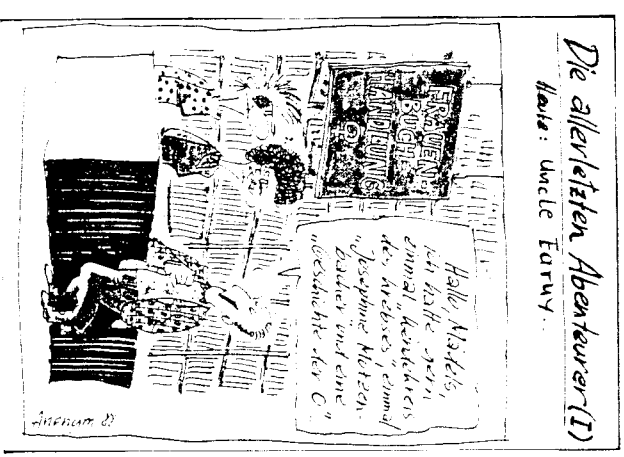 Die allerletzten Abenteurer (I)
Heute: Uncle Faruy.
FRAUEN-
BUCH
HANDLUNG
Hallo, Mädels,
ich hätte gern
einmal „Wendekreis
des Krebses", einmal
„Josephine Mutzen-
bacher und eine
„Geschichte der O".